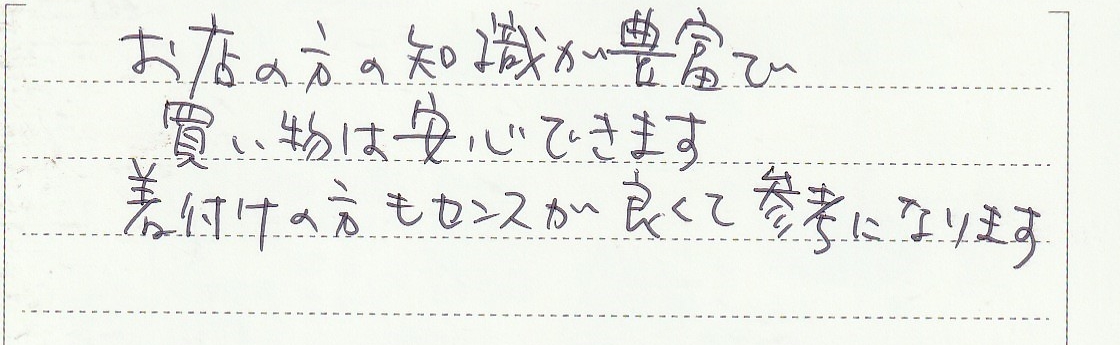 お店の方の知識が豊富で
買い物は安心できます
着付けの方もセンスが良くて参考になります